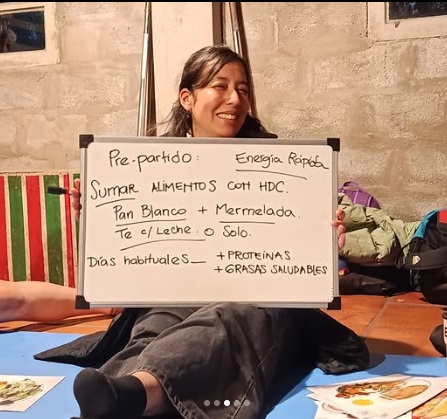 Pre-partido: Energía Rápida
Sumar ALIMENTOS CON HDC.
Pan Blanco + Mermelada.
Te c/ Leche o Solo.
Días habituales_ + PROTEÍNAS
+ GRASAS SALUDABLES